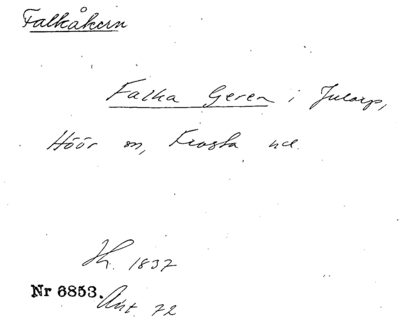 Falkåkern
Falka Geren i Jularp,
Höör sn, Frosta hd.
H. 1837
Nr 6853. Akt. 72